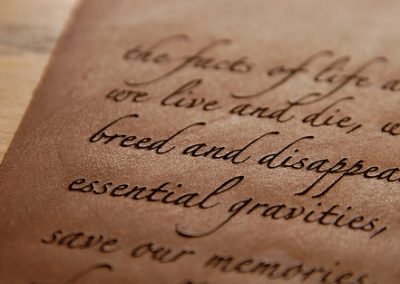 the facts of life a
we live and die, w
breed and disappea
essential gravities,
save our memories